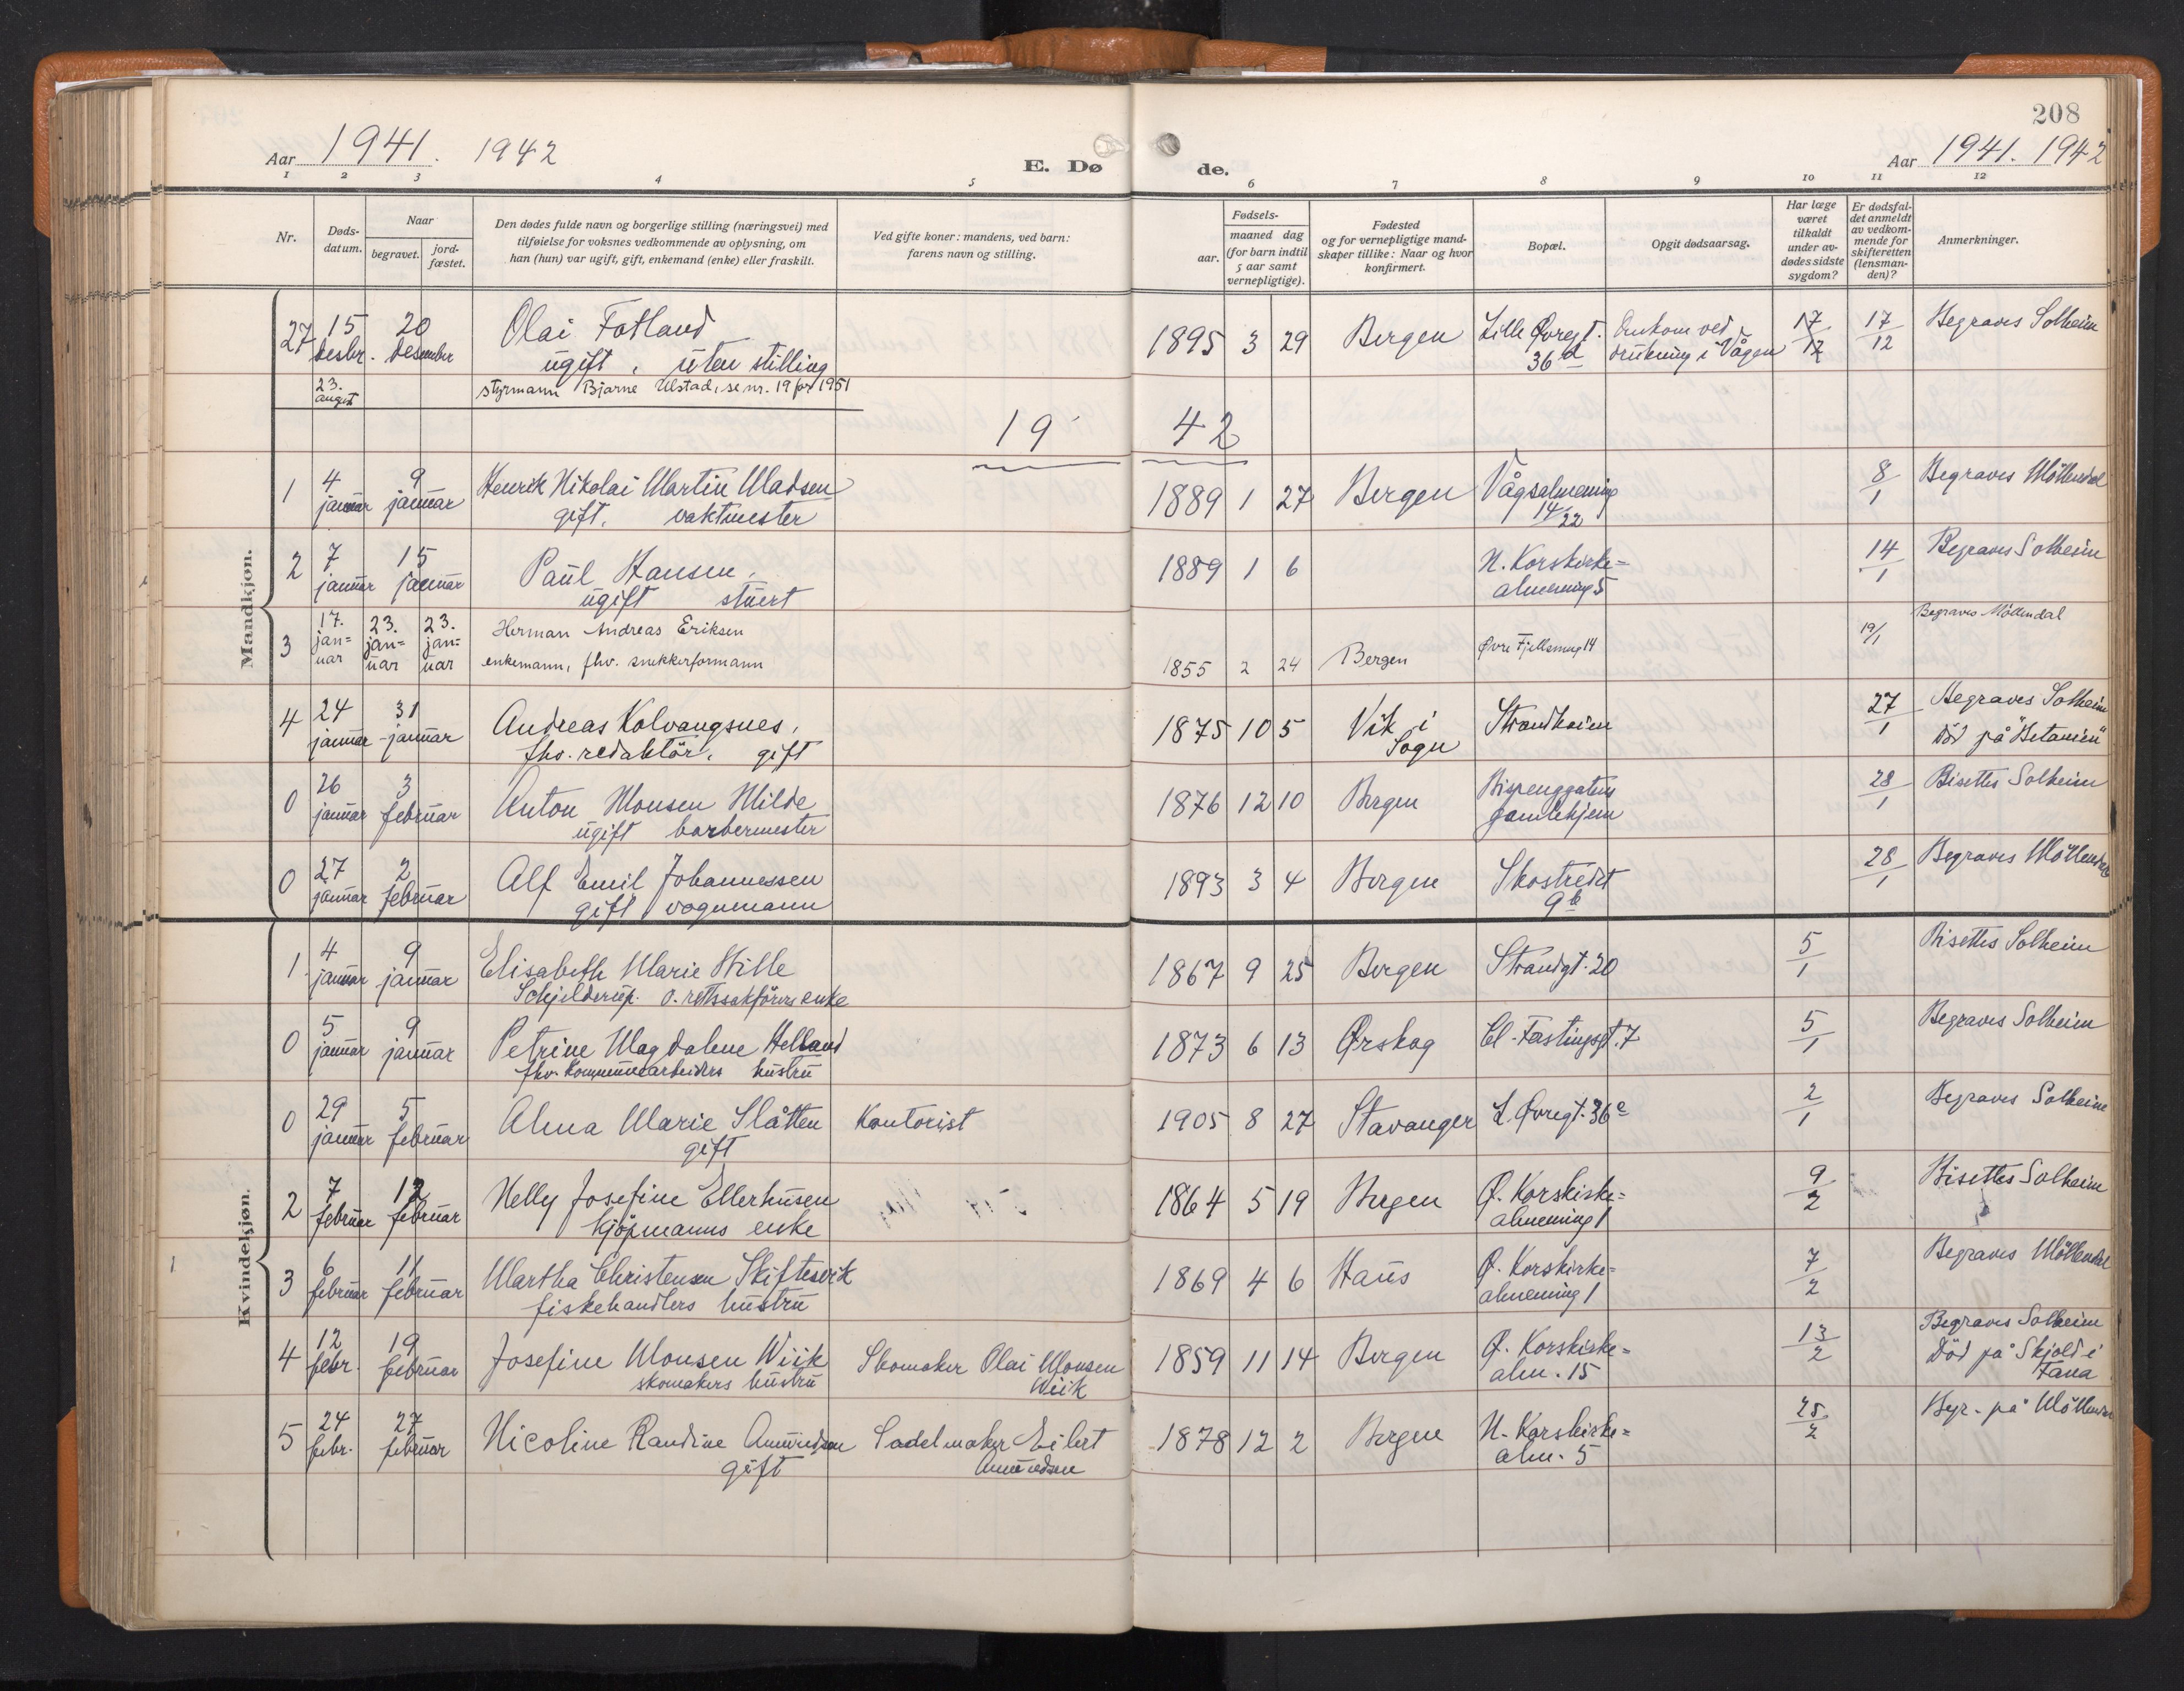 208
Aar 1941. 1942
E. Døde.
Aar 1941. 1942
1 2 3 4 5 6 7 8 9 10 11 12
Nr.
Døds-
datum.
Naar
begravet.
jord-
fæstet.
Den dødes fulde navn og borgerlige stilling (næringsvei) med
tilføielse for voksnes vedkommende av oplysning, om
han (hun) var ugift, gift, enkemand (enke) eller fraskilt.
Ved gifte koner: mandens, ved barn:
farens navn og stilling.
Fødsels-
aar.
maaned dag
(for barn indtil
5 aar samt
vernepligtige).
Fødested
og for vernepligtige mand-
skaper tillike: Naar og hvor
konfirmert.
Bopæl.
Opgit dødsaarsag.
Har læge
været
tilkaldt
under av-
dødes sidste
sygdom?
Er dødsfal-
det anmeldt
av vedkom-
mende for
skifteretten
(lensman-
den)?
Anmerkninger.
Mandkjøn.
27 15 20 Olai Fotland 1895 3 29 Bergen Lille Øvregt. Omkom ved 17 17 Begraves Solheim
desbr. desember ugift, uten stilling 36d drukning i Vågen 12 12
23. styrmann Bjarne Ulstad, se nr. 19 for 1951
august
19 42
1 4 9 Henrik Nikolai Martin Madsen 1889 1 27 Bergen Vågsalmening 8 Begraves Möllendal
januar januar gift. vaktmester 14/22 1
2 7 15 Paul Hansen, 1889 1 6 N. Korskirke= 14 Begraves Solheim
januar januar ugift stuert almening 5 1
3 17. 23. 23. Herman Andreas Eriksen Øvre Fjellsmug 14 19/1 Begraves Möllendal
jan= jan= jan=
uar uar uar enkemann, fhv. snekkerformann 1855 2 24 Bergen
4 24 31 Andreas Kolvangsnes, 1875 10 5 Vik i Strandheim 27 Begraves Solheim
januar januar fhv. redaktör, gift Sogn 1 Död på "Betanien"
0 26 3 Anton Monsen Milde 1876 12 10 Bergen Bispenggatens 28 Bisettes Solheim
januar februar ugift barbermester gamlehjem 1
0 27 2 Alf Emil Johannessen 1893 3 4 Bergen Skostredet 28 Begraves Möllendal
januar februar gift vognmann 9b 1
Kvindekjøn.
1 4 9 Elisabeth Marie Hille 1867 9 25 Bergen Strandgt. 20 5 Bisettes Solheim
januar januar Schjelderup. o. rettssakförers enke 1
0 5 9 Petrine Magdalene Helland 1873 6 13 Ørskog Cl. Fastingsgt. 7 5 Begraves Solheim
januar januar fhv. kommunearbeiders hustru 1
0 29 5 Alma Marie Slåtten Kontorist 1905 8 27 Stavanger L. Øvregt. 36e 2 Begraves Solheim
januar februar gift 1
2 7 12 Nelly Josefine Ellerhusen 1864 5 19 Bergen Ø. Korskirke= 9 Bisettes Solheim
februar februar kjöpmanns enke almening 1 2
3 6 11 Martha Christensen Skiftesvik 1869 4 6 Haus Ø. Korskirke= 7 Begraves Möllendal
februar februar fiskehandlers hustru almening 1 2
4 12 19 Josefine Monsen Wiik Skomaker Olai Monsen 1859 11 14 Bergen Ø. Korskirke= 13 Begraves Solheim
febr. februar skomakers hustru Wiik alm. 15 2 Död på Skjold i
Fana
5 24 27 Nicoline Randine Amundsen Sadelmaker Eilert 1878 12 2 Bergen N. Korskirke= 25 Begr. på Möllendal
febr. februar gift Amundsen alm. 5 2